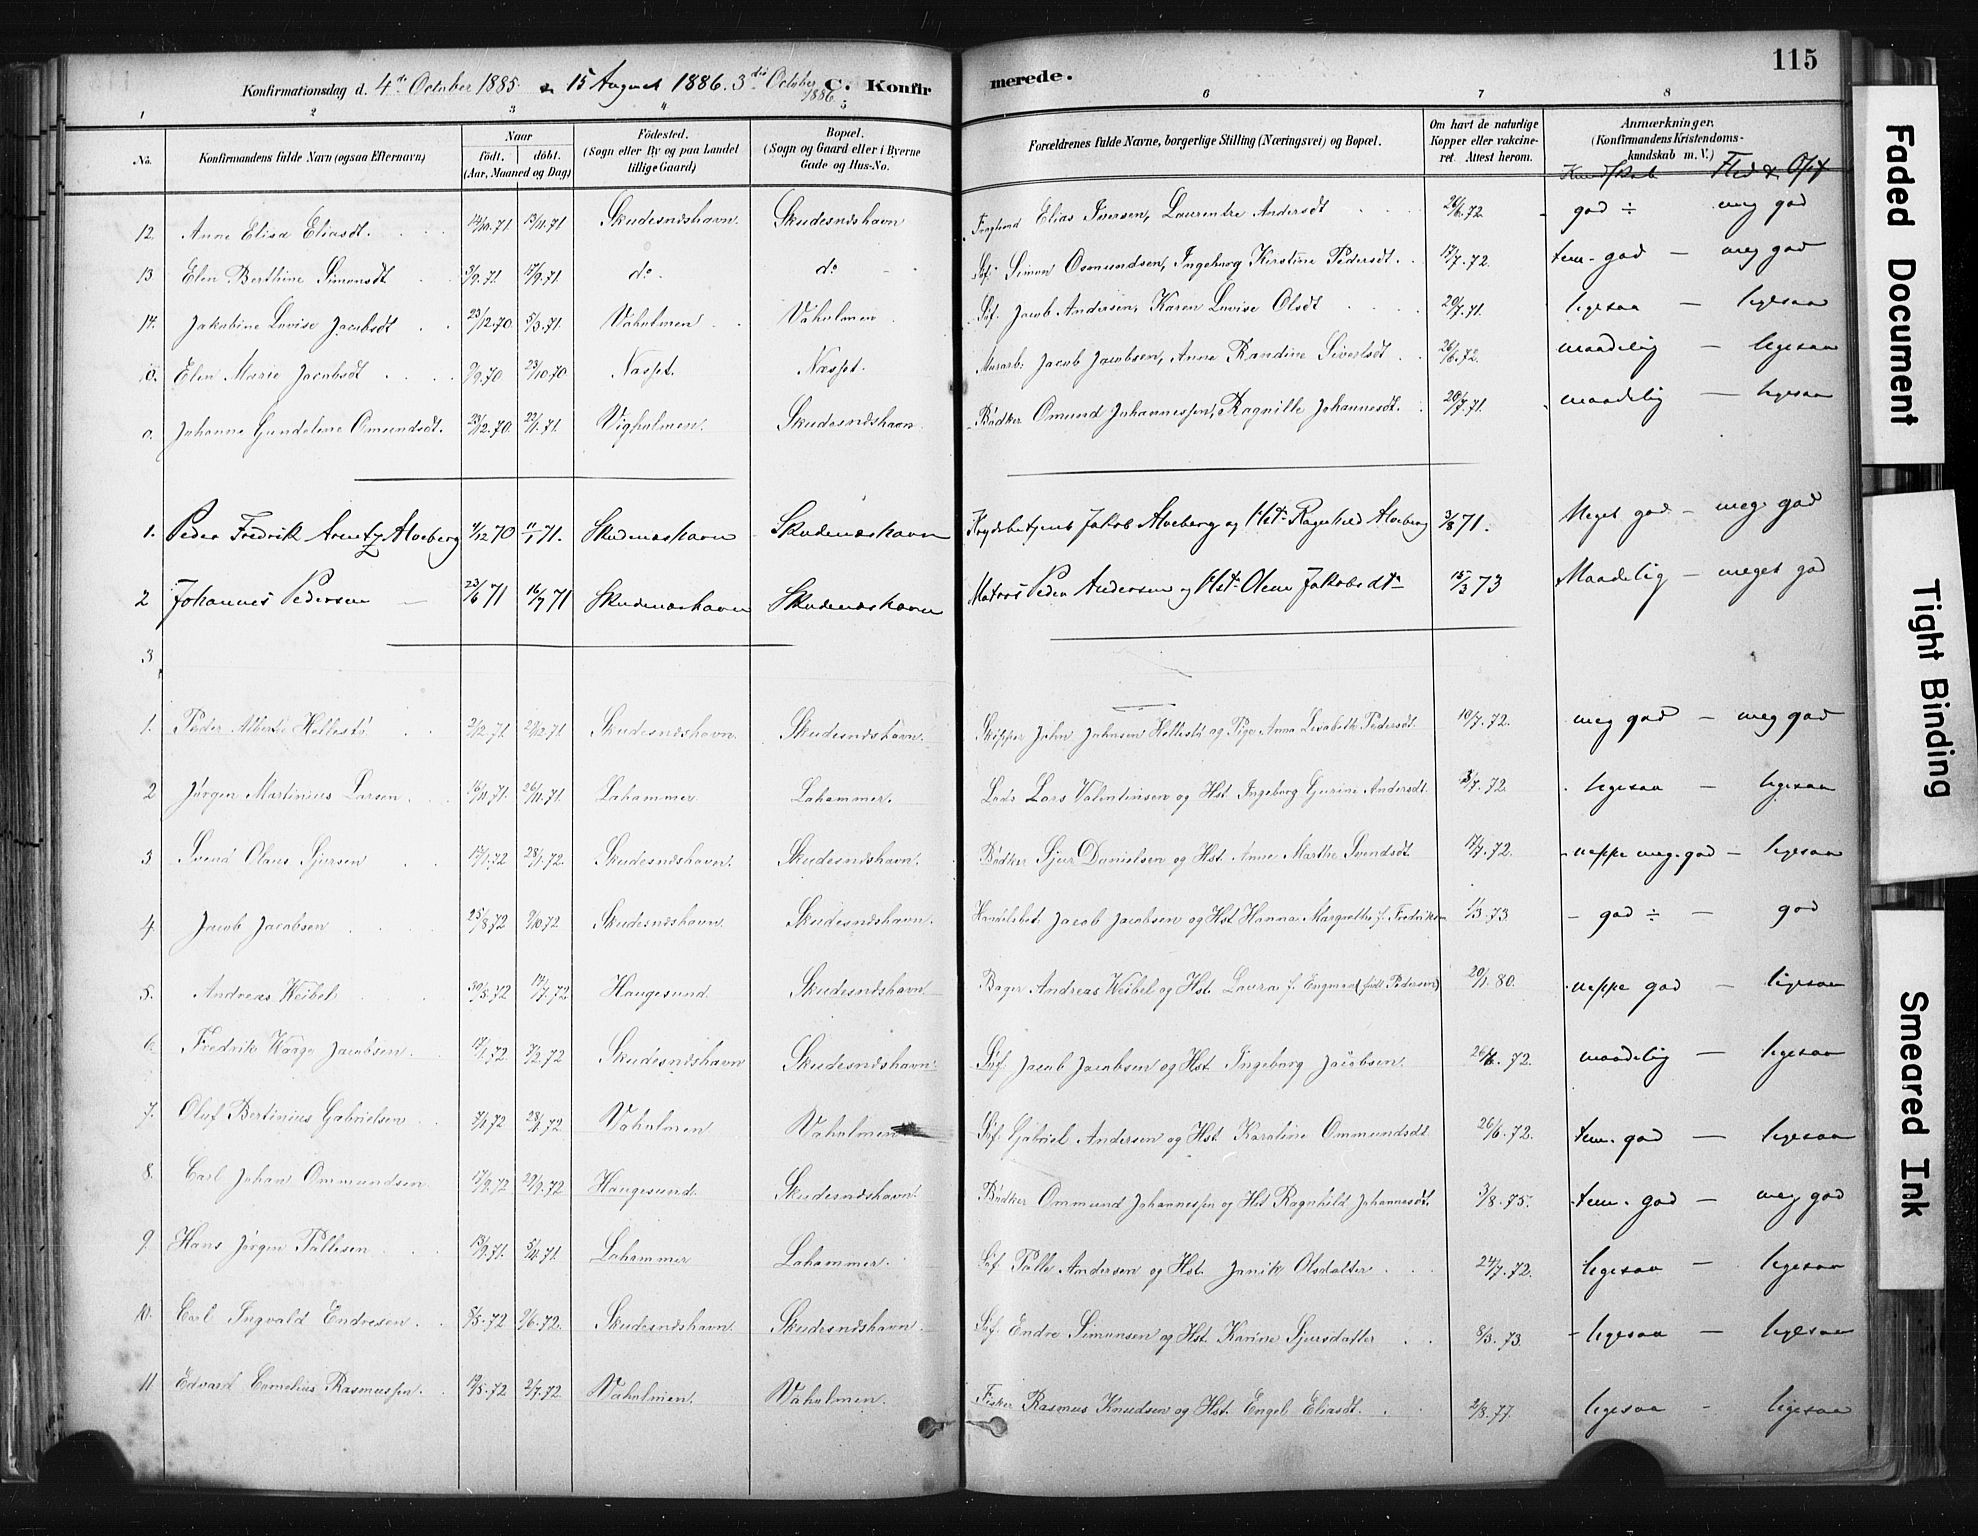 115
Konfirmationsdag d. 4de October 1885. 15 August 1886. 3die October 1886 C. Konfirmerede.
1 2 3 4 5 6 7 8
No. Konfirmandens fulde Navn (ogsaa Efternavn) Naar født. døbt. (Aar, Maaned og Dag) Fødested. (Sogn eller By og paa Landet tillige Gaard) Bopæl. (Sogn og Gaard eller i Byerne Gade og Hus-No. Forældrenes fulde Navne, borgerlige Stilling (Næringsvei) og Bopæl. Om havt de naturlige Kopper eller vakcineret. Attest herom. Anmærkninger. (Konfirmandens Kristendomskundskab m. V.)
Kundskab Flid & Opf
12. Anne Elisa Eliasdt. 14/10.71 13/11.71 Skudesnæshavn. Skudesnæshavn Elias Iversen, Laurentze Andersdt 26/6.72. god ÷ meg god
13 Elen Berthine Simonsdt 3/9.71 17/9.71 do do Søf. Simon Osmundsen, Ingeborg Kirstine Pedersdt. 17/7.72. tem. god — meg god
14. Jakobine Lovise Jacobsdt 23/12.70 5/3.71. Vaholmen Vaholmen Søf. Jacob Andersen, Karen Lovise Olsdt 20/7.71. ligesaa — ligesaa
Elen Marie Jacobsdt 9/9.70 23/10.70 Næsset. Næsset. Murarb. Jacob Jacobsen, Anne Randine Sivertsdt 26/6.72. maadelig — ligesaa
Johanne Gundeline Omundsdt. 23/12.70. 22/1.71. Vigholmen. Skudesnæshavn Bødker Omund Johannessen, Ragnille Johannesdt. 20/7.71. maadelig — ligesaa
1. Peder Fredrik Arentz Alveberg 9/12 70 11/1 71. Skudenæshavn Skudenæshavn Jakob Alveberg og Hst. Ragnhild Alveberg 3/8 71. Meget god — meg. god
2 Johannes Pedersen — 23/6 71 16/7 71 Skudenæshavn Skudenæshavn Matros Peder Andersen og Hst. Olene Jakobsdtr 15/3 73 Maadelig — meget god
3
1. Peder Alberti Hellestø 2/12.71 29/12.71 Skudesnæshavn. Skudesnæshavn. Skipper John Johnsen Hellestø og Pige Anna Lisabeth Pedersdt. 10/7.72. meg god — meg god
2 Jørgen Martinius Larsen. 16/11.71. 26/11.71. Lahammer. Lahammer. Lods Lars Valentinsen og Hst. Ingeborg Gurine Andersdt. 5/7.72. ligesaa — ligesaa
3 Svend Olaus Sjursen 17/1.72 28/1.72. Skudesnæshavn. Skudesnæshavn. Bødker Sjur Danielsen og Hst. Anne Marthe Svendsdt. 17/7.72. neppe meg. god — ligesaa
4. Jacob Jacobsen 25/8.72 2/10.72 Skudesnæshavn. Skudesnæshavn. Handelsbet. Jacob Jacobsen og Hst. Hanna Margrethe f. Fredriksen 1/3.73. god ÷ — god
5. Andreas Weibel 30/5.72 14/7.72. Haugesund. Skudesnæshavn Bager Andreas Weibel og Hst. Laura f. Engman (født Pedersen) 20/1.80. neppe god — ligesaa
6. Fredrik Waage Jacobsen. 17/1.72 3/2.72 Skudesnæshavn Skudesnæshavn. Søf. Jacob Jacobsen og Hst. Ingeborg Jacobsen. 26/6.72. maadelig — ligesaa
7. Oluf Bertinius Gabrielsen 7/1.72 28/1.72. Vaholmen Vaholmen Søf. Gabriel Andersen og Hst. Karoline Ommundsdt 26/6.72. tem. god — ligesaa
8. Carl Johan Ommundsen. 17/9.72 29/9.72 Haugesund. Skudesnæshavn. Bødker Ommund Johannessen og Hst Ragnhild Johannesdt. 3/8.75. tem. god — meg god
9. Hans Jørgen Pallesen 13/9.71. 5/11.71. Lahammer Lahammer. Søf. Palle Andersen og Hst. Jannik Olsdatter 24/7.72. ligesaa — ligesaa
10. Carl Ingvald Endresen. 8/5.72 9/6.72. Skudesnæshavn. Skudesnæshavn. Søf. Endre Simonsen og Hst. Karine Sjursdatter 8/3.73. ligesaa — ligesaa
11 Edvard Cornelius Rasmussen. 19/5.72 2/7.72. Vaholmen. Vaholmen. Fisker Rasmus Knudsen og Hst. Engel Eliasdt. 2/8.77. ligesaa — ligesaa
Faded Document
Tight Binding
Smeared Ink